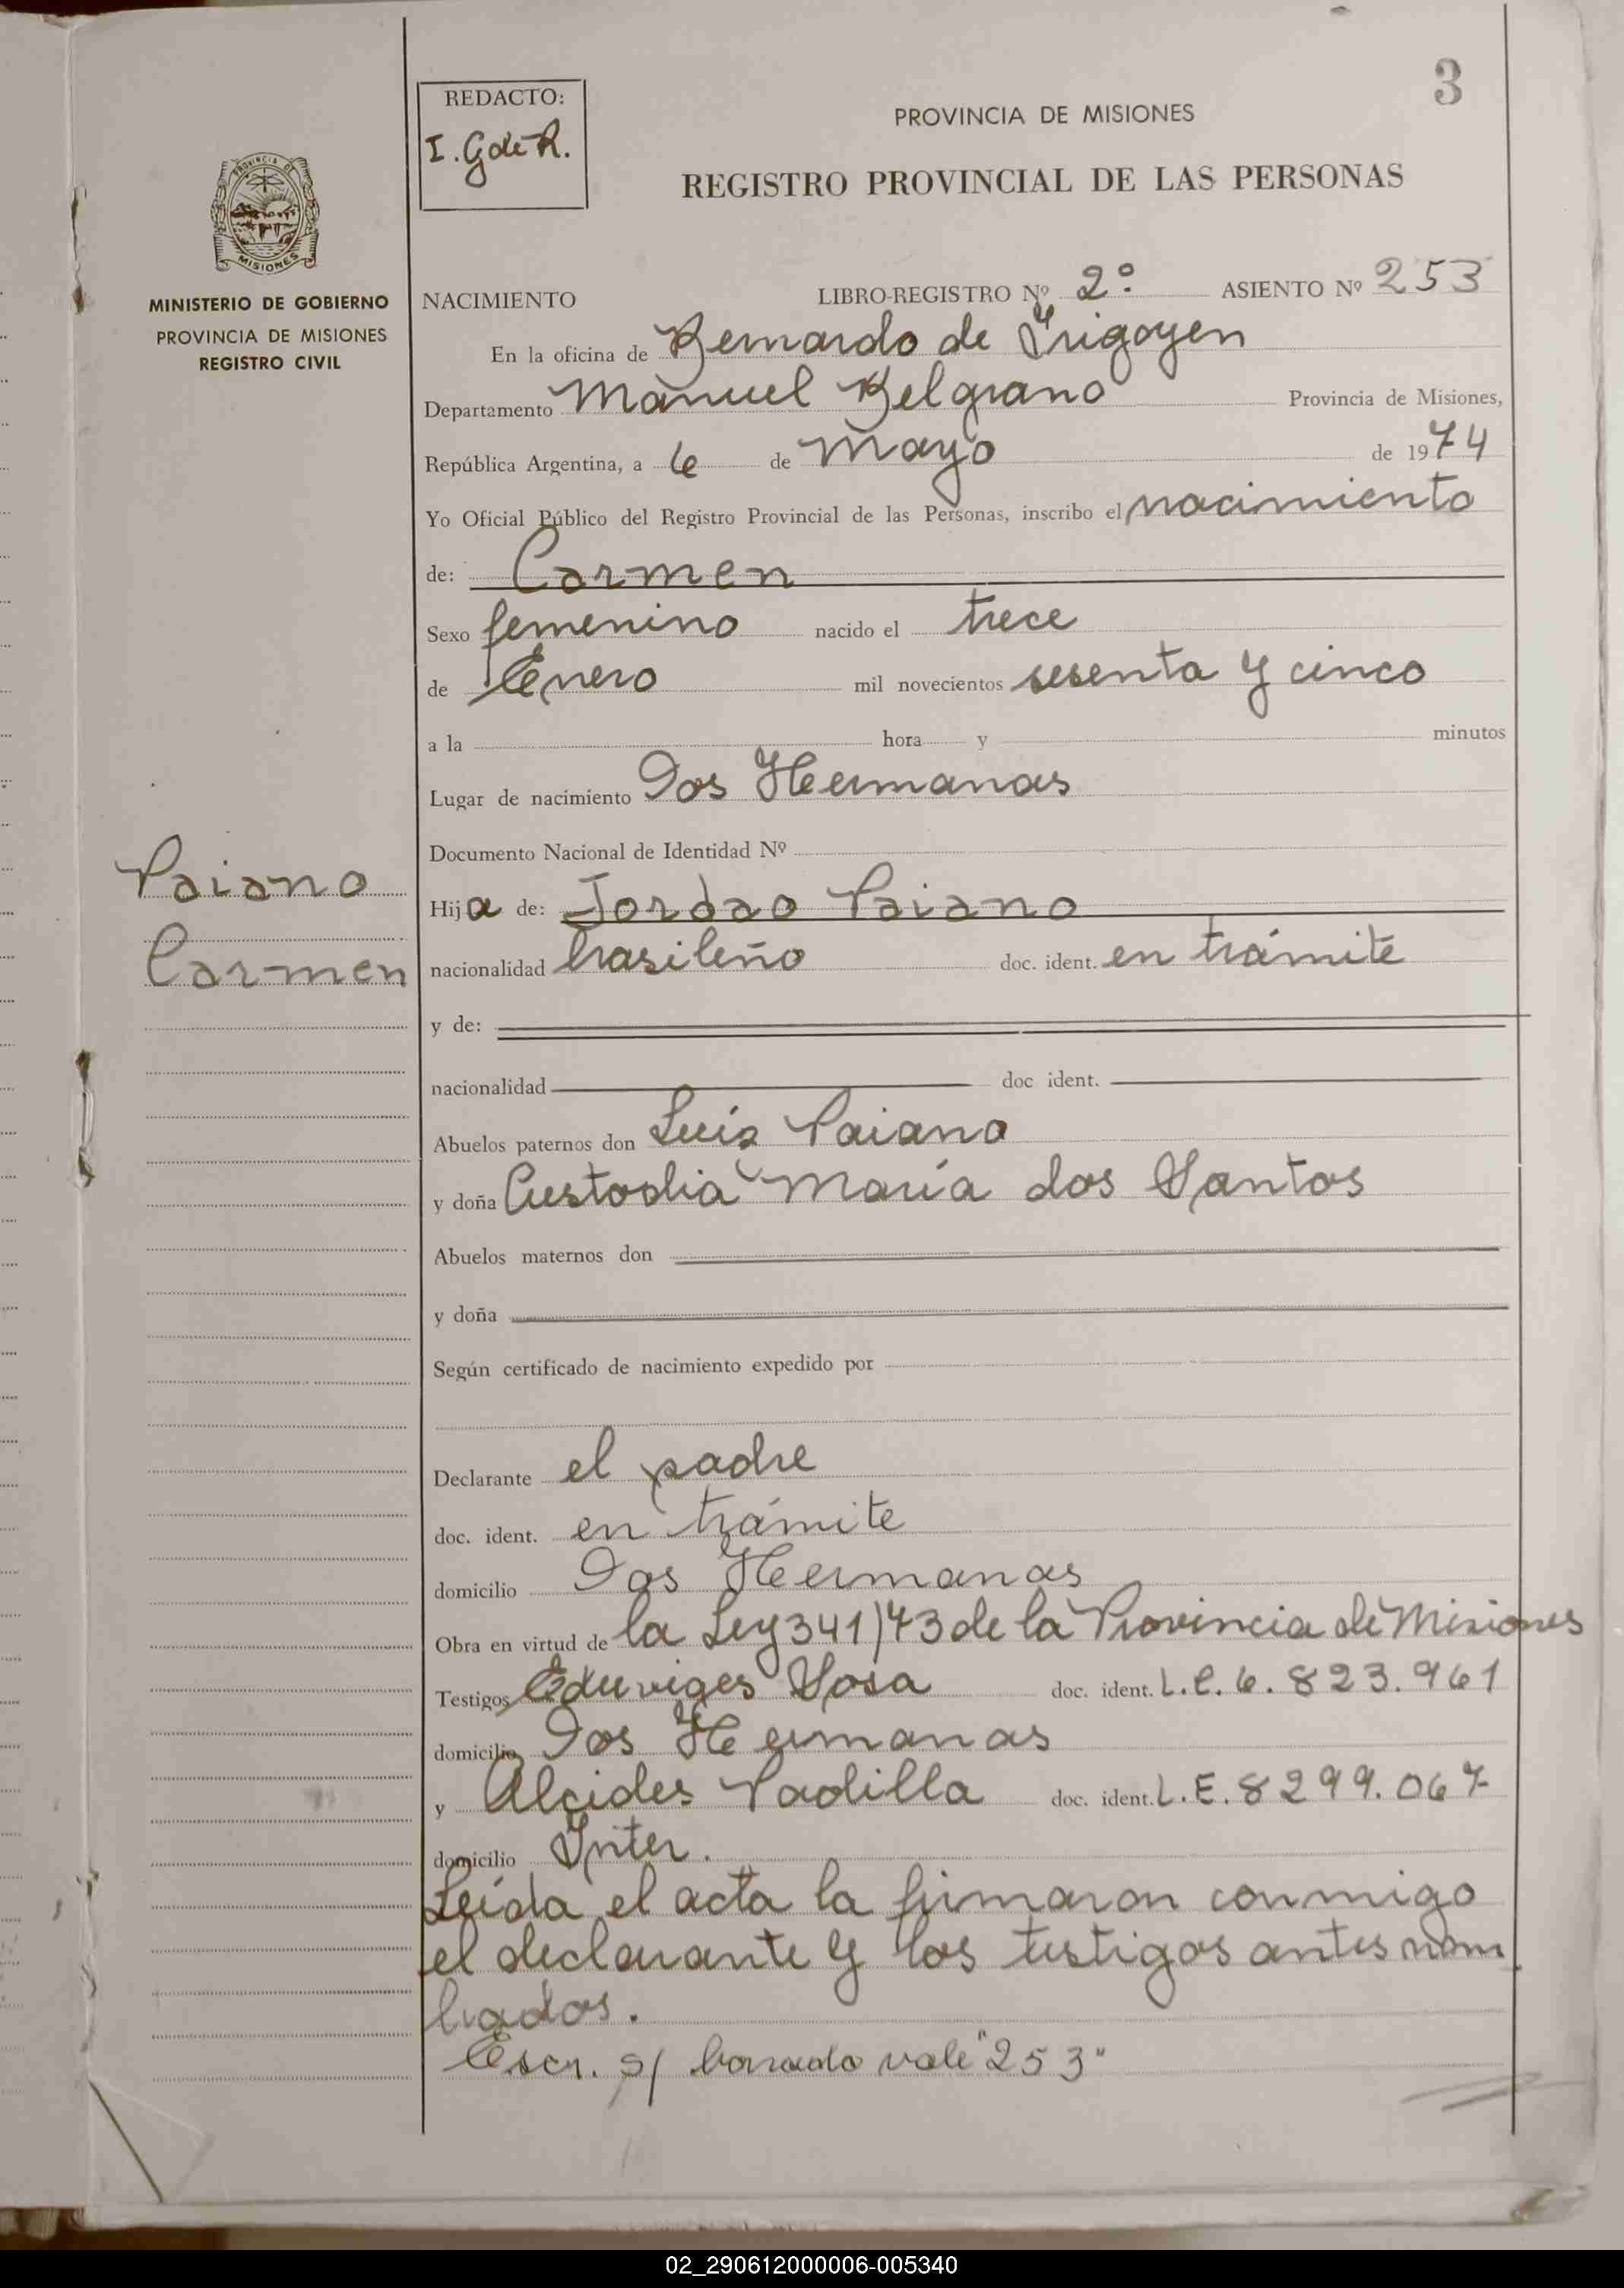 3
REDACTO:
I. G de R.
PROVINCIA DE MISIONES
REGISTRO PROVINCIAL DE LAS PERSONAS
PROVINCIA DE
MISIONES
MINISTERIO DE GOBIERNO
PROVINCIA DE MISIONES
REGISTRO CIVIL
NACIMIENTO LIBRO-REGISTRO Nº 2º ASIENTO Nº 253
En la oficina de Bernardo de Yrigoyen
Departamento Manuel Belgrano Provincia de Misiones,
República Argentina, a 6 de Mayo de 1974
Yo Oficial Público del Registro Provincial de las Personas, inscribo el nacimiento
de: Carmen
Sexo femenino nacido el trece
de Enero mil novecientos sesenta y cinco
a la hora y minutos
Lugar de nacimiento Dos Hermanas
Documento Nacional de Identidad Nº
Paiano
Carmen
Hija de: Jordao Paiano
nacionalidad brasileño doc. ident. en trámite
y de:
nacionalidad doc ident.
Abuelos paternos don Luís Paiano
y doña Custodia María dos Santos
Abuelos maternos don
y doña
Según certificado de nacimiento expedido por
Declarante el padre
doc. ident. en trámite
domicilio Dos Hermanas
Obra en virtud de la Ley 341/73 de la Provincia de Misiones
Testigos Eduviges Sosa doc. ident. L.C. 6.823.961
domicilio Dos Hermanas
y Alcides Padilla doc. ident. L.E. 8299.067
domicilio Inter.
Leída el acta la firmaron conmigo
el declarante y los testigos antes nom
brados.
Escr. s/ borrado vale "253"
02_290612000006-005340